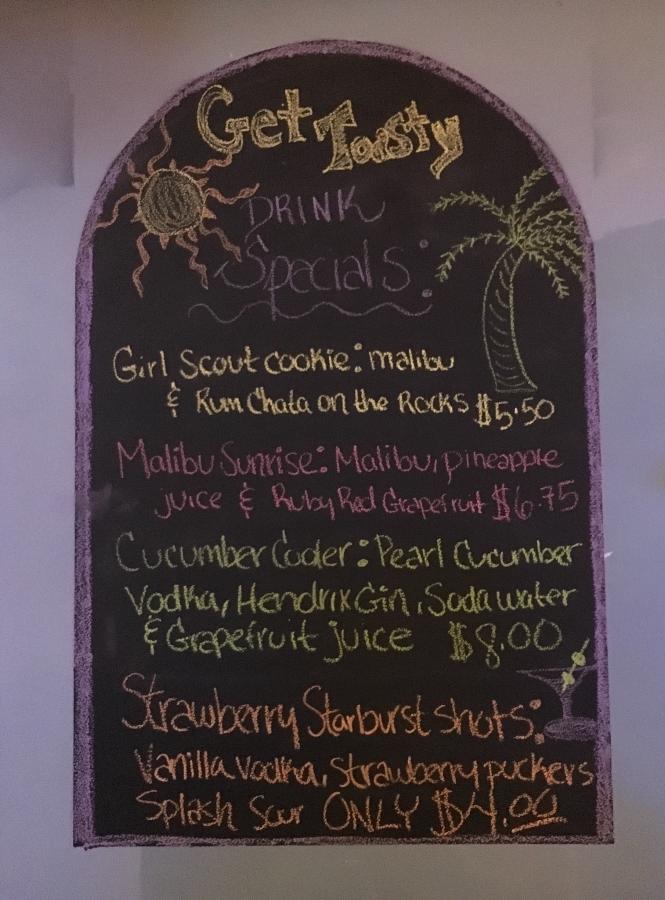 Get Toasty
DRINK
Specials:
Girl Scout cookie: malibu
& Rum Chata on the Rocks $5.50
Malibu Sunrise: Malibu, pineapple
juice & Ruby Red Grapefruit $6.75
Cucumber Cooler: Pearl Cucumber
Vodka, Hendrix Gin, Soda water
& Grapefruit juice $8.00
Strawberry Starburst shots:
Vanilla vodka, strawberry puckers
Splash Sour ONLY $4.00